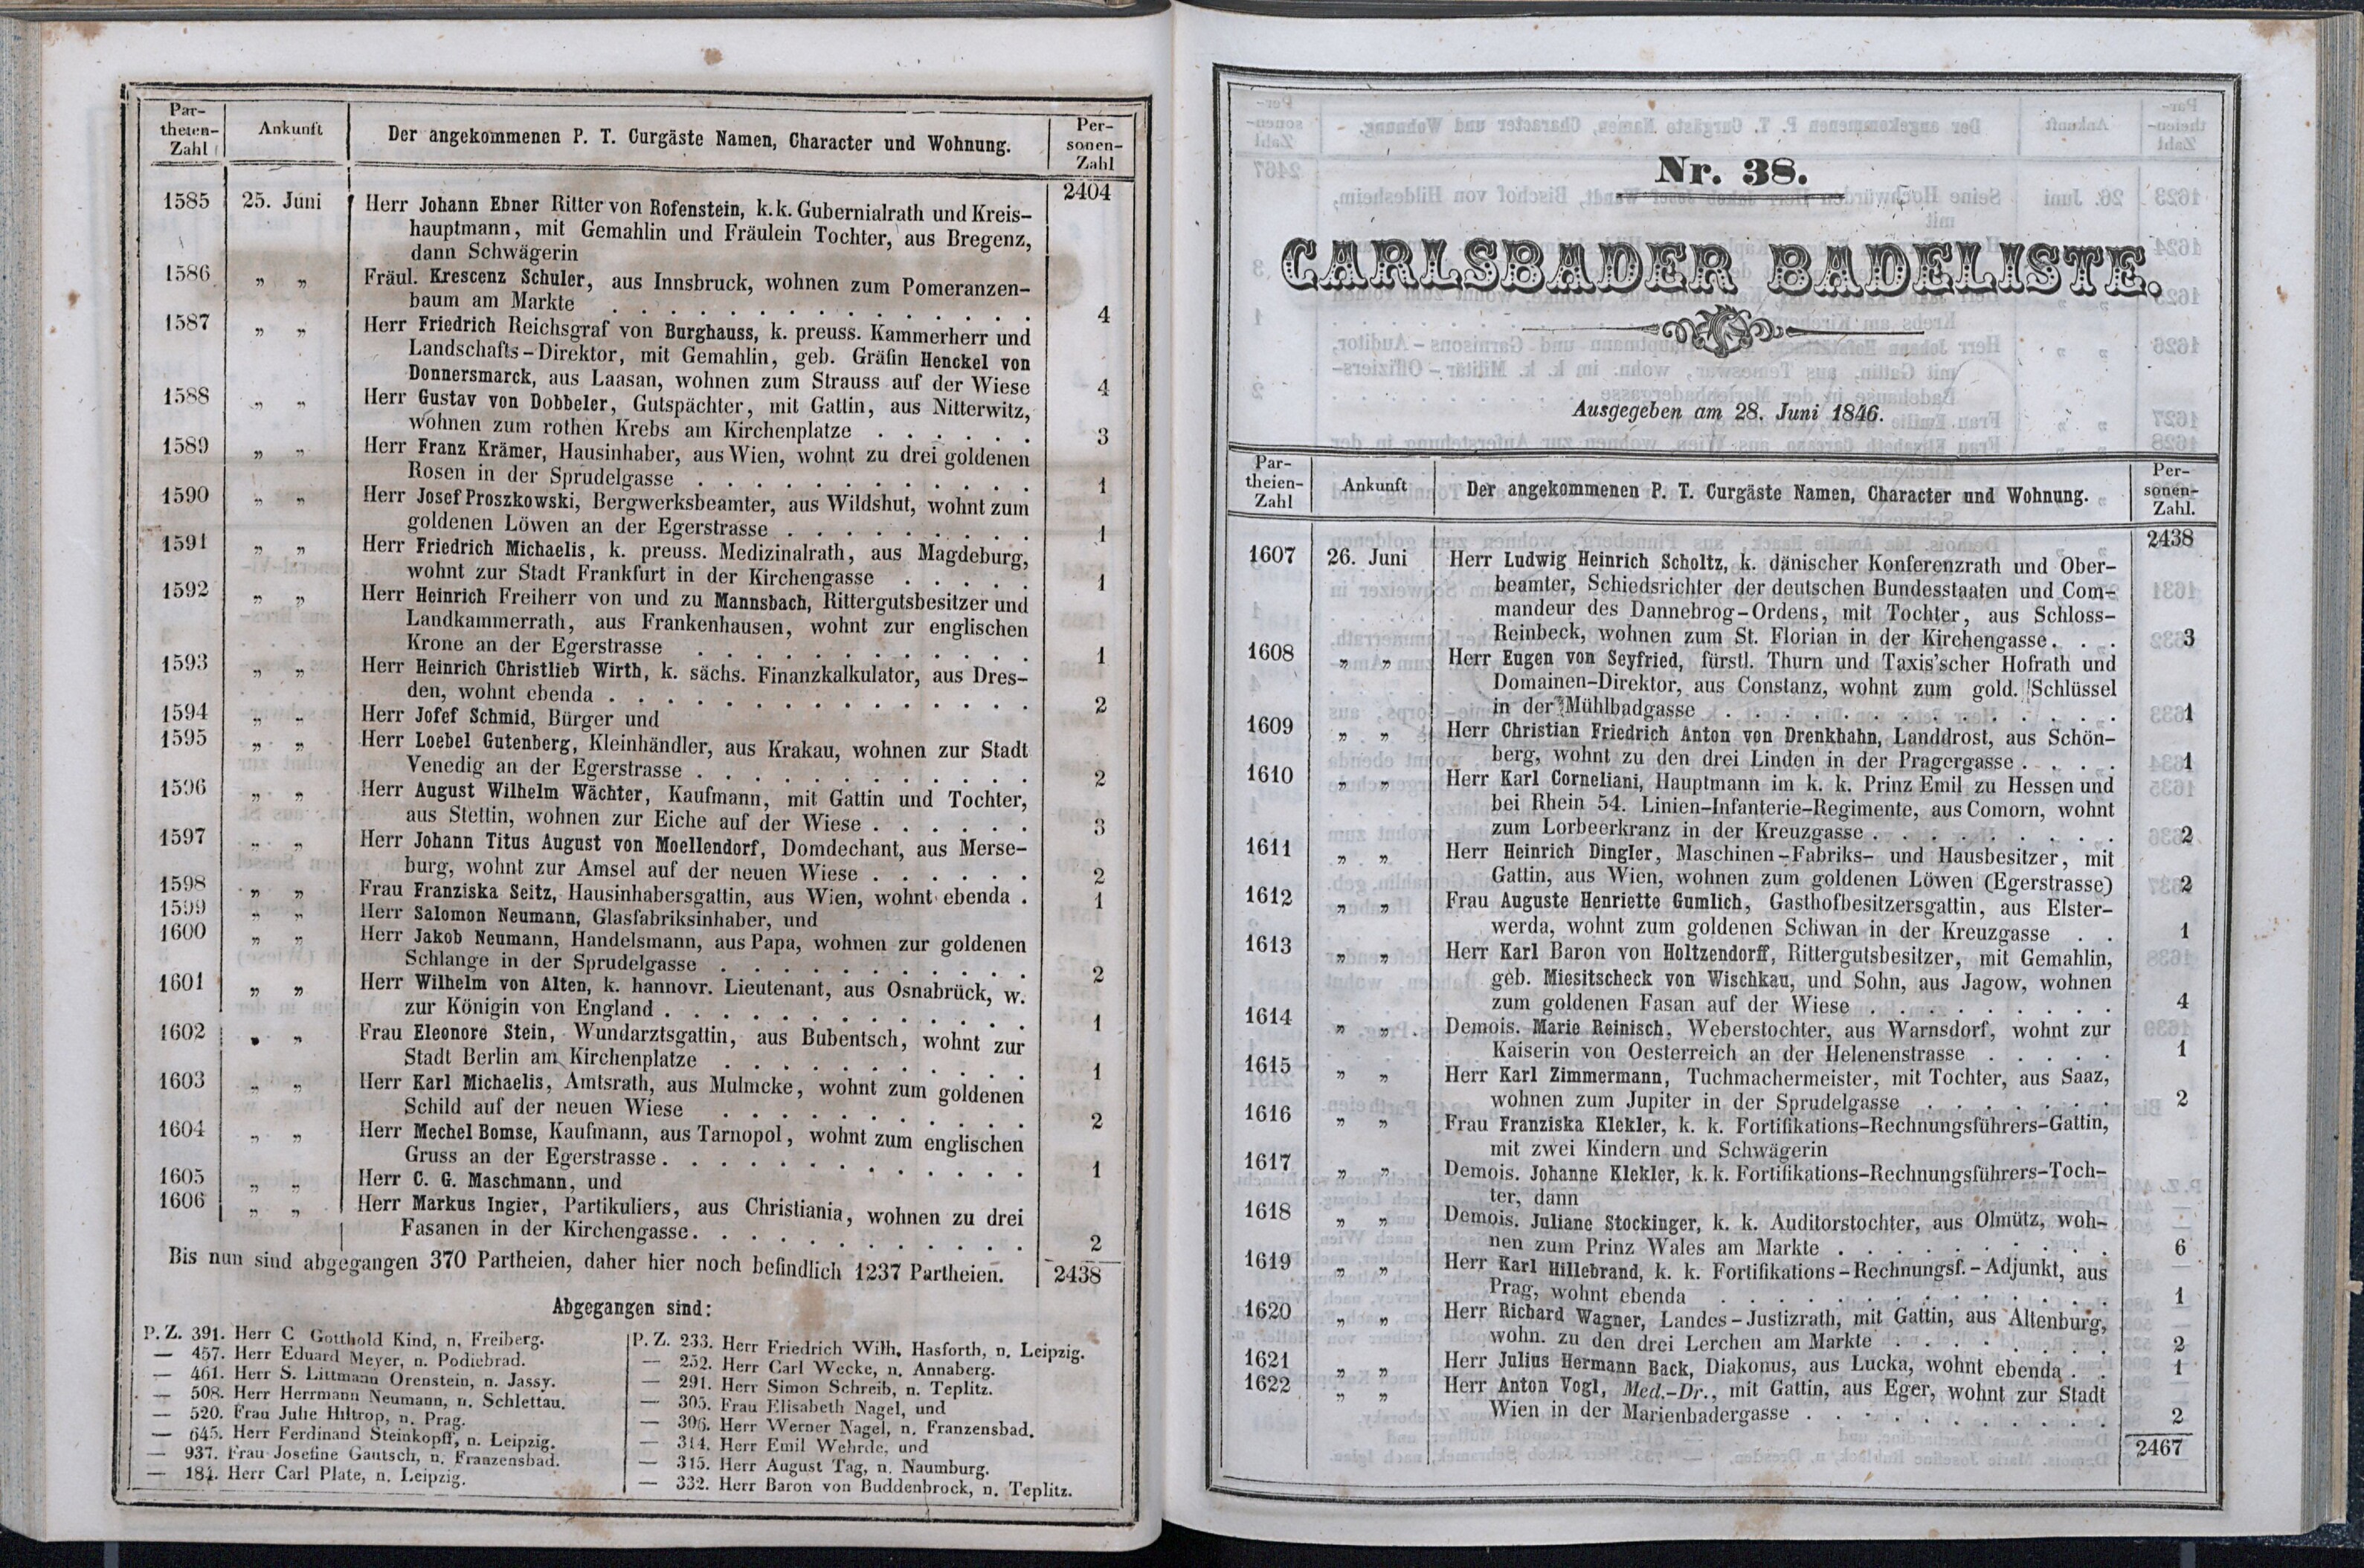 Par-
theien-
Zahl
Ankunft
Der angekommenen P. T. Curgäste Namen, Character und Wohnung.
Per-
sonen-
Zahl
2404
1585 25. Juni Herr Johann Ebner Ritter von Rofenstein, k. k. Gubernialrath und Kreis-
hauptmann, mit Gemahlin und Fräulein Tochter, aus Bregenz,
dann Schwägerin
1586 „ „ Fräul. Krescenz Schuler, aus Innsbruck, wohnen zum Pomeranzen-
baum am Markte . . . . . . 4
1587 „ „ Herr Friedrich Reichsgraf von Burghauss, k. preuss. Kammerherr und
Landschafts-Direktor, mit Gemahlin, geb. Gräfin Henckel von
Donnersmarck, aus Laasan, wohnen zum Strauss auf der Wiese 4
1588 „ „ Herr Gustav von Dobbeler, Gutspächter, mit Gattin, aus Nitterwitz,
wohnen zum rothen Krebs am Kirchenplatze . . . . . . 3
1589 „ „ Herr Franz Krämer, Hausinhaber, aus Wien, wohnt zu drei goldenen
Rosen in der Sprudelgasse . . . . . . 1
1590 „ „ Herr Josef Proszkowski, Bergwerksbeamter, aus Wildshut, wohnt zum
goldenen Löwen an der Egerstrasse . . . . . . 1
1591 „ „ Herr Friedrich Michaelis, k. preuss. Medizinalrath, aus Magdeburg,
wohnt zur Stadt Frankfurt in der Kirchengasse . . . . . 1
1592 „ „ Herr Heinrich Freiherr von und zu Mannsbach, Rittergutsbesitzer und
Landkammerrath, aus Frankenhausen, wohnt zur englischen
Krone an der Egerstrasse . . . . . . 1
1593 „ „ Herr Heinrich Christlieb Wirth, k. sächs. Finanzkalkulator, aus Dres-
den, wohnt ebenda . . . . . . 2
1594 „ „ Herr Jofef Schmid, Bürger und
1595 „ „ Herr Loebel Gutenberg, Kleinhändler, aus Krakau, wohnen zur Stadt
Venedig an der Egerstrasse . . . . . . 2
1596 „ „ Herr August Wilhelm Wächter, Kaufmann, mit Gattin und Tochter,
aus Stettin, wohnen zur Eiche auf der Wiese . . . . . . 3
1597 „ „ Herr Johann Titus August von Moellendorf, Domdechant, aus Merse-
burg, wohnt zur Amsel auf der neuen Wiese . . . . . . 2
1598 „ „ Frau Franziska Seitz, Hausinhabersgattin, aus Wien, wohnt ebenda . 1
1599 „ „ Herr Salomon Neumann, Glasfabriksinhaber, und
1600 „ „ Herr Jakob Neumann, Handelsmann, aus Papa, wohnen zur goldenen
Schlange in der Sprudelgasse . . . . . . 2
1601 „ „ Herr Wilhelm von Alten, k. hannovr. Lieutenant, aus Osnabrück, w.
zur Königin von England . . . . . . 1
1602 „ „ Frau Eleonore Stein, Wundarztsgattin, aus Bubentsch, wohnt zur
Stadt Berlin am Kirchenplatze . . . . . . 1
1603 „ „ Herr Karl Michaelis, Amtsrath, aus Mulmcke, wohnt zum goldenen
Schild auf der neuen Wiese . . . . . . 2
1604 „ „ Herr Mechel Bomse, Kaufmann, aus Tarnopol, wohnt zum englischen
Gruss an der Egerstrasse . . . . . . 1
1605 „ „ Herr C. G. Maschmann, und
1606 „ „ Herr Markus Ingier, Partikuliers, aus Christiania, wohnen zu drei
Fasanen in der Kirchengasse . . . . . . 2
Bis nun sind abgegangen 370 Partheien, daher hier noch befindlich 1237 Partheien. 2438
Abgegangen sind:
P. Z. 391. Herr C Gotthold Kind, n. Freiberg.
— 457. Herr Eduard Meyer, n. Podiebrad.
— 461. Herr S. Littmann Orenstein, n. Jassy.
— 508. Herr Herrmann Neumann, n. Schlettau.
— 520. Frau Julie Hiltrop, n. Prag.
— 645. Herr Ferdinand Steinkopff, n. Leipzig.
— 937. Frau Josefine Gautsch, n. Franzensbad.
— 184. Herr Carl Plate, n. Leipzig.
P. Z. 233. Herr Friedrich Wilh. Hasforth, n. Leipzig.
— 252. Herr Carl Wecke, n. Annaberg.
— 291. Herr Simon Schreib, n. Teplitz.
— 305. Frau Elisabeth Nagel, und
— 306. Herr Werner Nagel, n. Franzensbad.
— 314. Herr Emil Wehrde, und
— 315. Herr August Tag, n. Naumburg.
— 332. Herr Baron von Buddenbrock, n. Teplitz.
Nr. 38.
CARLSBADER BADELISTE.
Ausgegeben am 28. Juni 1846.
Par-
theien-
Zahl
Ankunft
Der angekommenen P. T. Curgäste Namen, Character und Wohnung.
Per-
sonen-
Zahl.
2438
1607 26. Juni Herr Ludwig Heinrich Scholtz, k. dänischer Konferenzrath und Ober-
beamter, Schiedsrichter der deutschen Bundesstaaten und Com-
mandeur des Dannebrog-Ordens, mit Tochter, aus Schloss-
Reinbeck, wohnen zum St. Florian in der Kirchengasse . . . 3
1608 „ „ Herr Eugen von Seyfried, fürstl. Thurn und Taxis'scher Hofrath und
Domainen-Direktor, aus Constanz, wohnt zum gold. Schlüssel
in der Mühlbadgasse . . . . . . 1
1609 „ „ Herr Christian Friedrich Anton von Drenkhahn, Landdrost, aus Schön-
berg, wohnt zu den drei Linden in der Pragergasse . . . . 1
1610 „ „ Herr Karl Corneliani, Hauptmann im k. k. Prinz Emil zu Hessen und
bei Rhein 54. Linien-Infanterie-Regimente, aus Comorn, wohnt
zum Lorbeerkranz in der Kreuzgasse . . . . . . 2
1611 „ „ Herr Heinrich Dingler, Maschinen-Fabriks- und Hausbesitzer, mit
Gattin, aus Wien, wohnen zum goldenen Löwen (Egerstrasse) 2
1612 „ „ Frau Auguste Henriette Gumlich, Gasthofbesitzersgattin, aus Elster-
werda, wohnt zum goldenen Schwan in der Kreuzgasse . . 1
1613 „ „ Herr Karl Baron von Holtzendorff, Rittergutsbesitzer, mit Gemahlin,
geb. Miesitscheck von Wischkau, und Sohn, aus Jagow, wohnen
zum goldenen Fasan auf der Wiese . . . . . . 4
1614 „ „ Demois. Marie Reinisch, Weberstochter, aus Warnsdorf, wohnt zur
Kaiserin von Oesterreich an der Helenenstrasse . . . . . 1
1615 „ „ Herr Karl Zimmermann, Tuchmachermeister, mit Tochter, aus Saaz,
wohnen zum Jupiter in der Sprudelgasse . . . . . . 2
1616 „ „ Frau Franziska Klekler, k. k. Fortifikations-Rechnungsführers-Gattin,
mit zwei Kindern und Schwägerin
1617 „ „ Demois. Johanne Klekler, k. k. Fortifikations-Rechnungsführers-Toch-
ter, dann
1618 „ „ Demois. Juliane Stockinger, k. k. Auditorstochter, aus Olmütz, woh-
nen zum Prinz Wales am Markte . . . . . . 6
1619 „ „ Herr Karl Hillebrand, k. k. Fortifikations-Rechnungsf.-Adjunkt, aus
Prag, wohnt ebenda . . . . . . 1
1620 „ „ Herr Richard Wagner, Landes-Justizrath, mit Gattin, aus Altenburg,
wohn. zu den drei Lerchen am Markte . . . . . . 2
1621 „ „ Herr Julius Hermann Back, Diakonus, aus Lucka, wohnt ebenda . . 1
1622 „ „ Herr Anton Vogl, Med.-Dr., mit Gattin, aus Eger, wohnt zur Stadt
Wien in der Marienbadergasse . . . . . . 2
2467